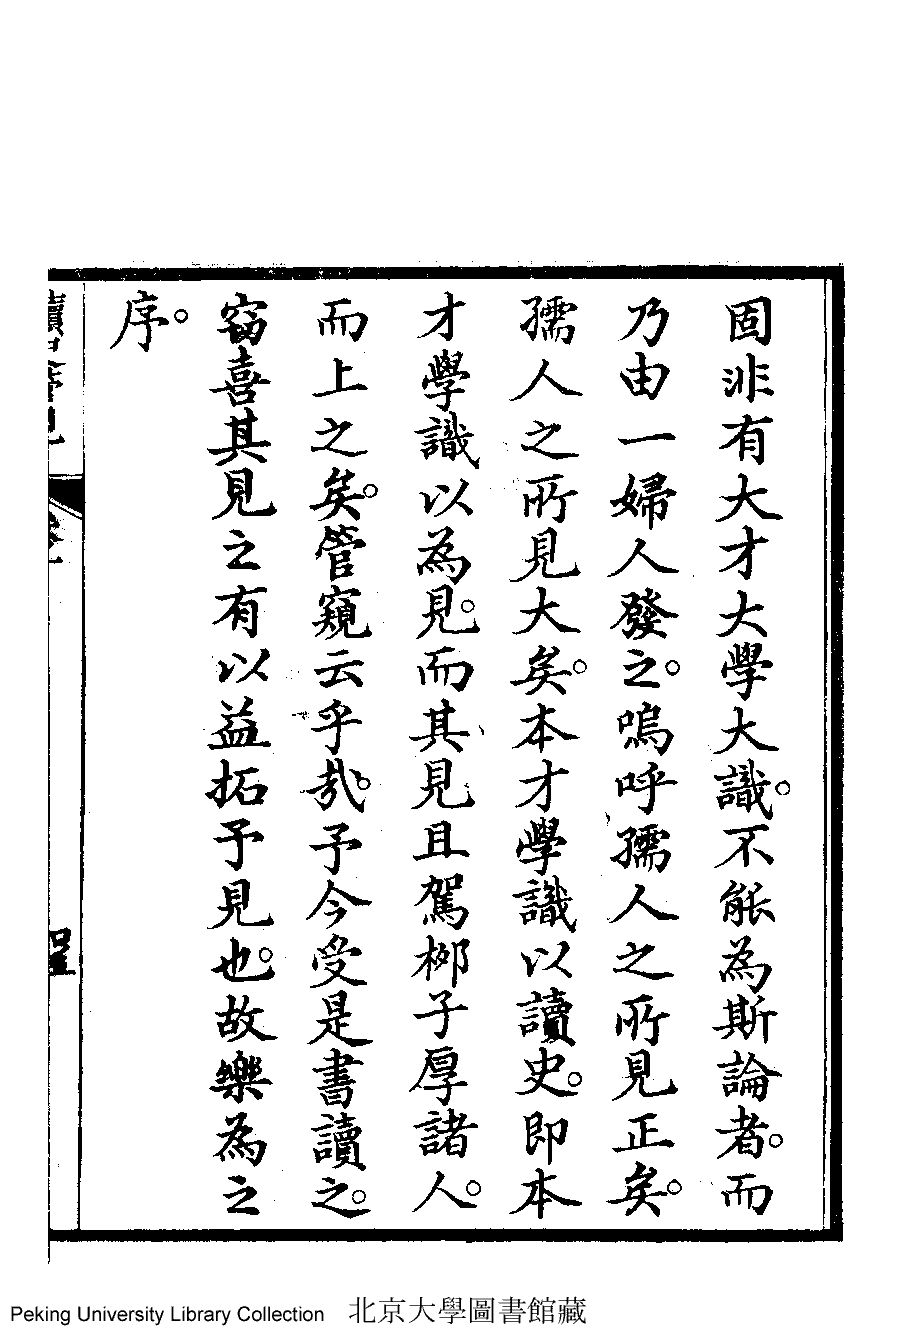 固非有大才大學大識。不能為斯論者。而
乃由一婦人發之。嗚呼孺人之所見正矣。
孺人之所見大矣。本才學識以讀史。即本
才學識以為見。而其見且駕栁子厚諸人。
而上之矣。管窺云乎哉。予今受是書讀之。
窃喜其見之有以益拓予見也。故樂為之
序。
Peking University Library Collection 北京大學圖書館藏